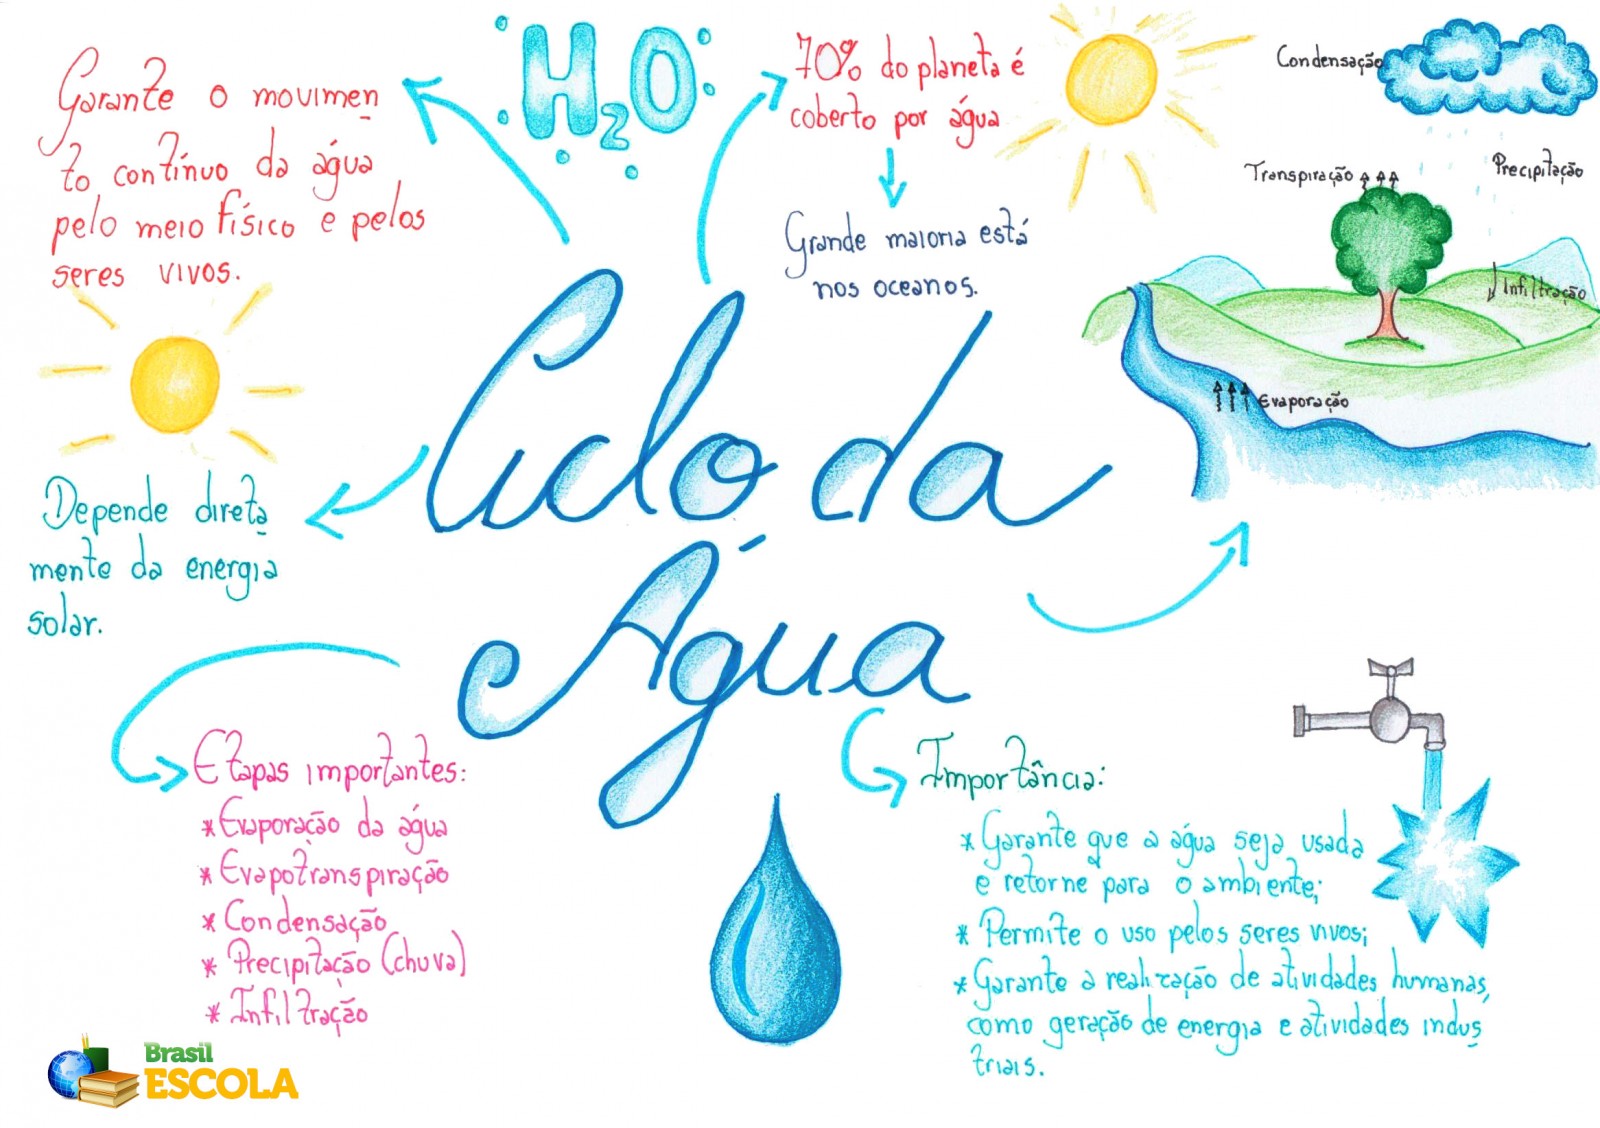 Garante o movimen
to contínuo da água
pelo meio físico e pelos
seres vivos.
H2O
70% do planeta é
coberto por água
Grande maioria está
nos oceanos.
Condensação
Transpiração
Precipitação
Infiltração
Evaporação
Ciclo da
Água
Depende direta
mente da energia
solar.
Etapas importantes:
* Evaporação da água
* Evapotranspiração
* Condensação
* Precipitação (chuva)
* Infiltração
Importância:
* Garante que a água seja usada
e retorne para o ambiente;
* Permite o uso pelos seres vivos;
* Garante a realização de atividades humanas,
como geração de energia e atividades indus
triais.
Brasil
ESCOLA